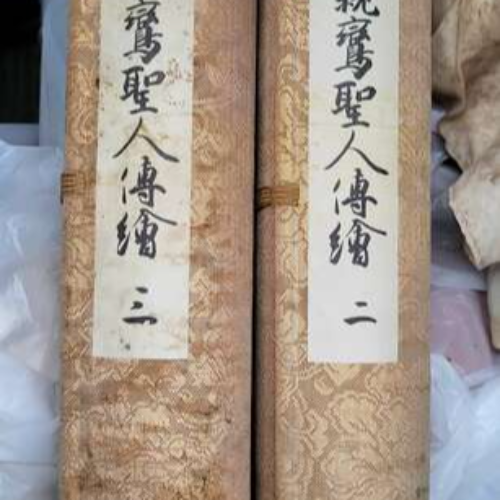 親鸞聖人傳繪 二
鸞聖人傳繪 三